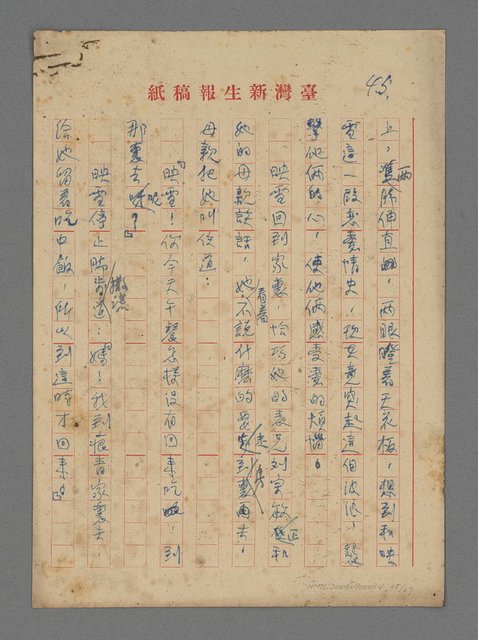 45.
紙稿報生新灣臺
上，兩隻脚伸直，兩眼瞪着天花板，想到和映
雪這一段戀愛情史，現在竟突起這個波浪，襲
擊他倆的心，使他倆感受着的煩惱。
映雪回到家裏，恰巧她的表兄刘宗敏正和
她的母親談話，她看着不說什麼的走到裏面去，
母親把她叫住道：
「映雪！你今天午餐怎樣沒有回來吃，到
那裏去呢？」
映雪停止脚步撒謊道：「媽！我到痕青家裏去，
給她留着吃中飯，所以到這時才回來。」